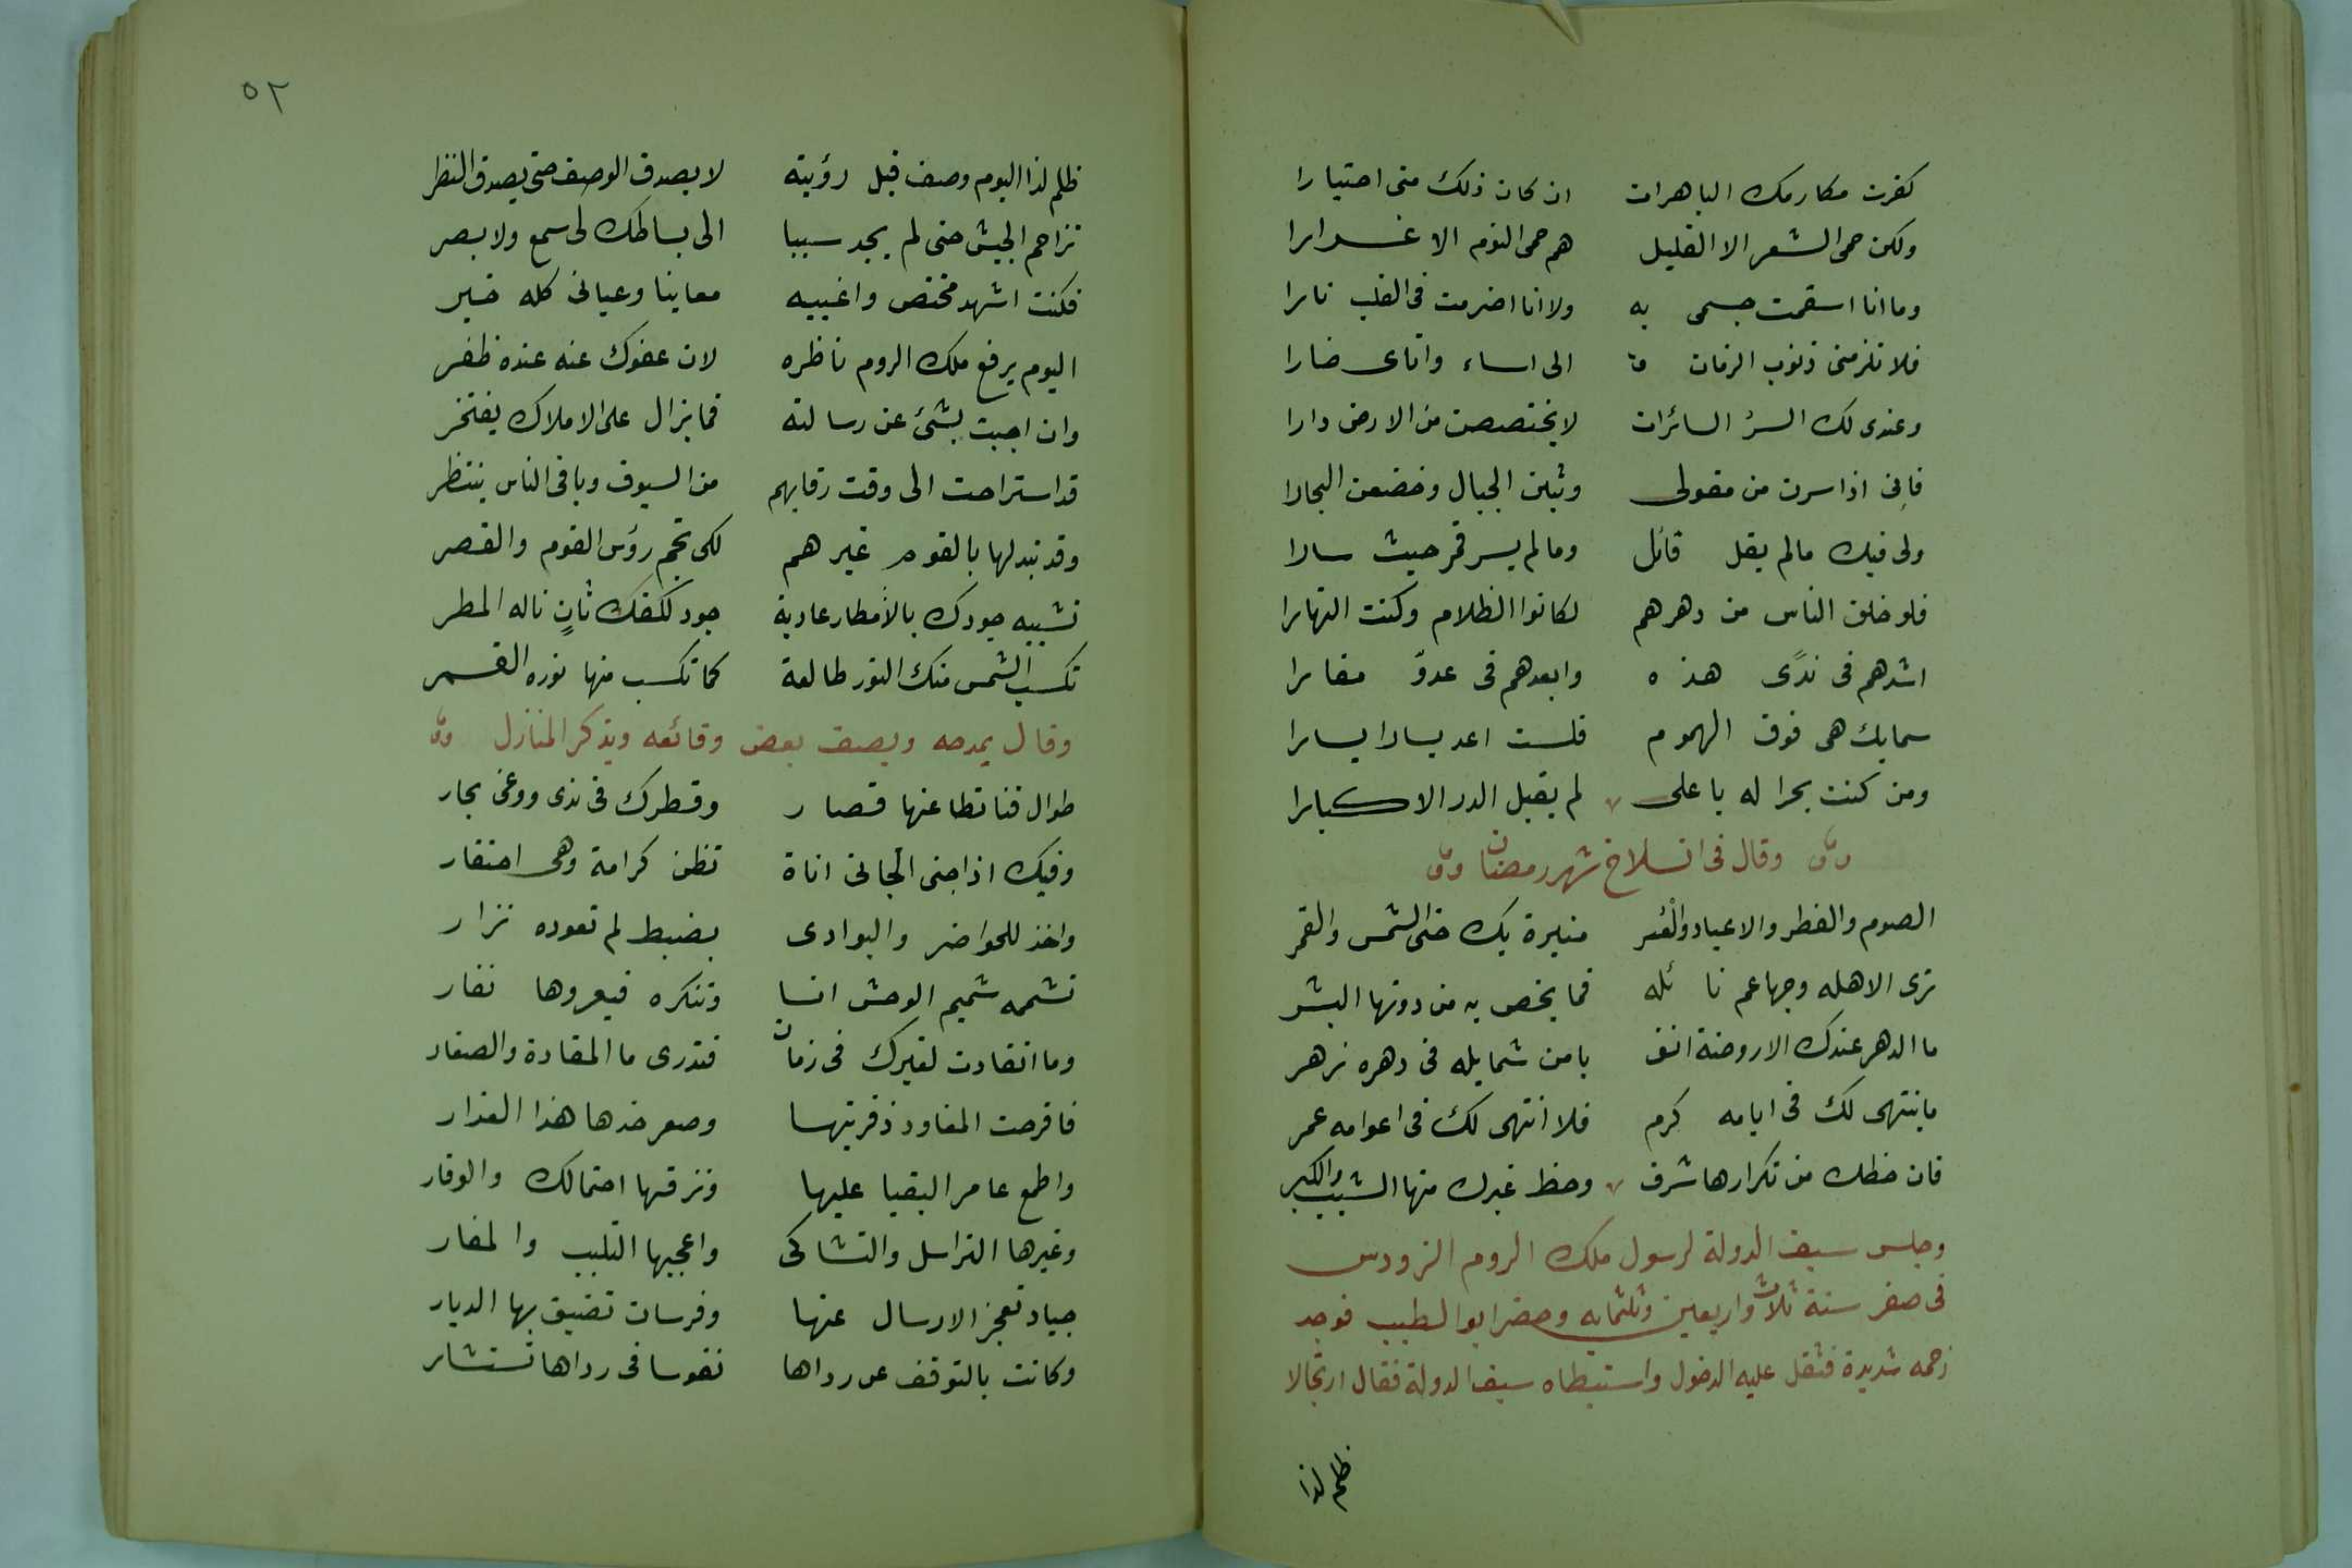 كفرت مكارمك الباهرات ان كان ذلك منى اختيارا
ولكن حمى الشعر الا القليل هم حمى النوم الا غرارا
وما انا اسقمت جسمى به ولا انا اضرمت فى القلب نارا
فلا تلزمنى ذنوب الزمان الى اساء واياى ضارا
وعندى لك السرُ السائرات لا يختصصن من الارض دارا
فإنى اذا سرن من مقولى وثبن الجبال وخضن البحارا
ولى فيك مالم يقل قائل ومالم يسر قمر حيث سارا
فلو خلق الناس من دهرهم لكانوا الظلام وكنت النهارا
اشدهم فى ندًى هذه وابعدهم فى عدوّ مغارا
سمابك هى فوق الهموم فلست اعد يسارا يسارا
ومن كنت بحرا له يا على لم يقبل الدر الا كبارا
وقال فى انسلاخ شهر رمضان
الصوم والفطر والاعياد والْعُصر منيرة بك حتى الشمس والقمر
ترى الاهله وجها عم نائله فما يخص به من دونها البشر
ما الدهر عندك الا روضة انف يا من شمايله فى دهره زهر
ما ينتهى لك فى ايامه كرم فلا انتهى لك فى اعوامه عمر
فان حظك من تكرارها شرف وحظ غيرك منها الشيب والكبر
وجلس سيف الدولة لرسول ملك الروم الزودس
فى صفر سنة ثلاث واربعين وثلثمايه وحضر ابو الطيب فوجد
زحمه شديدة فثقل عليه الدخول واستبطاه سيف الدولة فقال ارتجالا
ظلم لذا
٥٢
ظلم لذا اليوم وصف قبل رؤيته لا يصدق الوصف حتى يصدق النظر
تزاحم الجيش حتى لم يجد سببا الى بساطك لى سمع ولا بصر
فكنت اشهد مختص واغيبه معاينا وعيانى كله خبر
اليوم يرفع ملك الروم ناظره لان عفوك عنه عنده ظفر
وان اجبت بشئ عن رسالته فما يزال على الاملاك يفتخر
قد استراحت الى وقت رقابهم من السيوف وباقى الناس ينتظر
وقد تبدلها بالقوم غيرهم لكى تجم رؤس القوم والقصر
تشبيه جودك بالأمطار عادية جود لكفك ثانٍ ناله المطر
تكسب الشمس منك النور طالعة كما تكسب منها نوره القمر
وقال يمدحه ويصف بعض وقائعه ويذكر المنازل
طوال قنا تطاعنها قصار وقطرك فى ندى ووغى بحار
وفيك اذا جنى الجانى اناة تظن كرامة وهى احتقار
واخذ للحواضر والبوادى بضبط لم تعوده نزار
تشممه شميم الوحش انسا وتنكره فيعروها نفار
وما انقادت لغيرك فى زمان فتدرى ما المقادة والصغار
فاقرحت المقاود ذفريتها وصعر خدها هذا العذار
واطمع عامر البقيا عليها ونزقها احتمالك والوقار
وغيرها التراسل والتشاكى واعجبها التلبب والمغار
جياد تعجز الارسال عنها وفرسان تضيق بها الديار
وكانت بالتوقف عن رداها نفوسا فى رداها تستشار